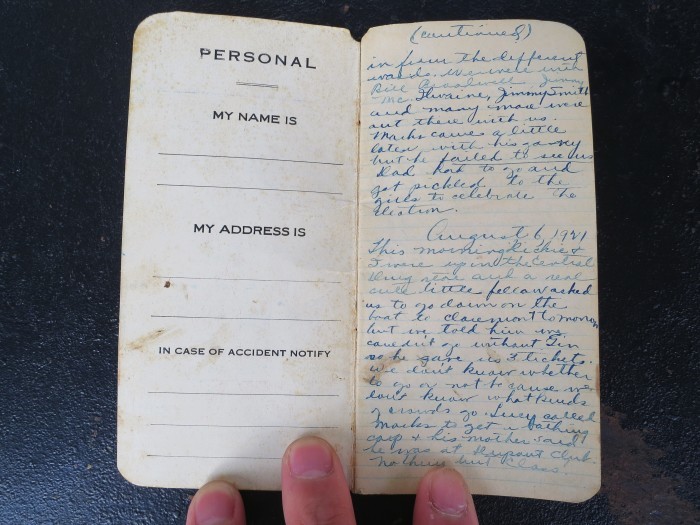 PERSONAL
MY NAME IS
MY ADDRESS IS
IN CASE OF ACCIDENT NOTIFY
(continued)
in from the different
wards. We were with
Bill Jimmy
Mc. Ilwaine, Jimmy Smith
and many more were
out there with us.
Marks came a little
later with his
but he failed to see us
Dad had to go and
got pickled to the
gills to celebrate the
election.
August 6, 1921
This morning &
I were up in the Central
Drug store and a real
cute little fellow asked
us to go down on the
boat to Claremont tomorrow
but we told him we
couldn't go without
so he gave us 3 tickets.
We don't know whether
to go or not because we
don't know what kinds
of crowds go. Lucy called
Marks to get a bathing
cap & his mother said
he was at Dupont Club.
Nothing but Class.